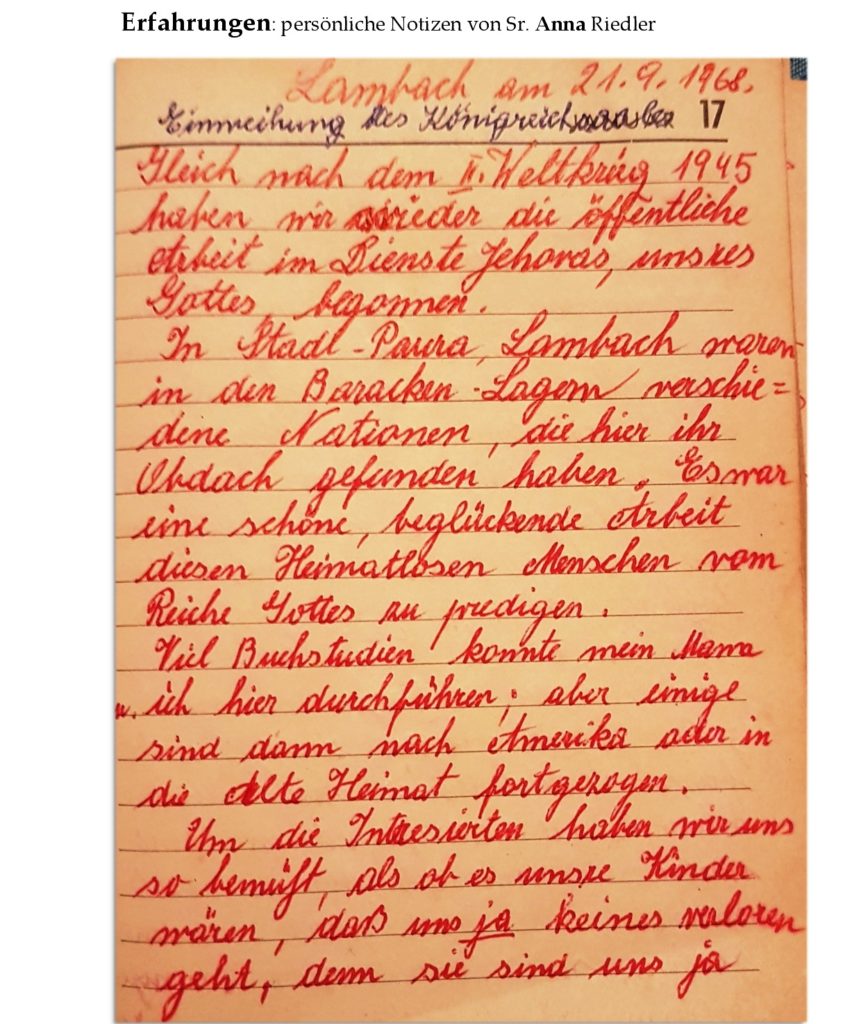 Erfahrungen: persönliche Notizen von Sr. Anna Riedler
Lambach am 21.9.1968.
Einweihung des Königreichsaales 17
Gleich nach dem II. Weltkrieg 1945
haben wir wieder die öffentliche
Arbeit im Dienste Jehovas, unsres
Gottes, begonnen.
In Stadl-Paura, Lambach waren
in den Baracken-Lagern verschie=
dene Nationen, die hier ihr
Obdach gefunden haben. Es war
eine schöne, beglückende Arbeit
diesen Heimatlosen Menschen vom
Reiche Gottes zu predigen.
Viel Buchstudien konnte mein Mama
u. ich hier durchführen; aber einige
sind dann nach Amerika oder in
die Alte Heimat fortgezogen.
Um die Intresierten haben wir uns
so bemüht, als ob es unsre Kinder
wären, daß uns ja keines verloren
geht, denn sie sind uns ja